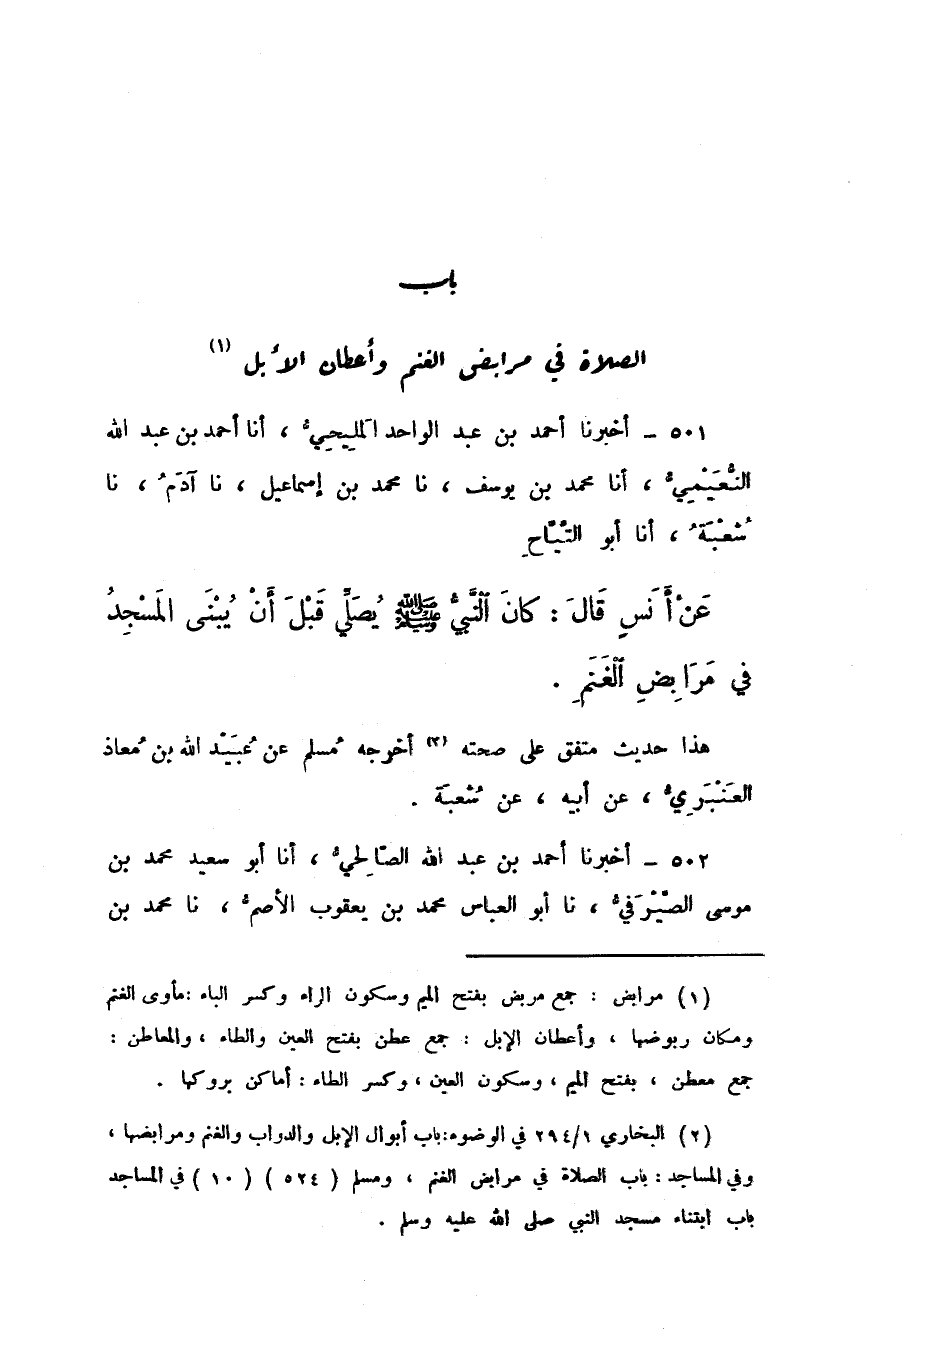 باب
الصلاة في مرابض الغنم وأعطان الأبل (١)
٥٠١ ــ أخبرنا أحمد بن عبد الواحد المَلِيحِيُّ ، أنا أحمد بن عبد الله
النُّعَيْمِيُّ ، أنا محمد بن يوسف ، نا محمد بن إسماعيل ، نا آدَمُ ، نا
شُعْبَةُ ، أنا أبو التَّيَّاحِ
عَنْ أَنَسٍ قَالَ : كَانَ ٱلنَّبِيُّ ﷺ يُصَلِّي قَبْلَ أَنْ يُبْنَى المَسْجِدُ
في مَرَابِضِ ٱلْغَنَمِ .
هذا حديث متفق على صحته (٢) أخرجه مُسلم عن عُبَيْد الله بن مُعاذ
العَنْبَرِيُّ ، عن أبيه ، عن شُعبَة .
٥٠٢ ــ أخبرنا أحمد بن عبد الله الصَّالِحيُّ ، أنا أبو سعيد محمد بن
موسى الصَّيْرَفيُّ ، نا أبو العباس محمد بن يعقوب الأصمُّ ، نا محمد بن
(١) مرابض : جمع مربض بفتح الميم وسكون الراء وكسر الباء : مأوى الغنم
ومكان ربوضها ، وأعطان الإبل : جمع عطن بفتح العين والطاء ، والمعاطن :
جمع معطن ، بفتح الميم ، وسكون العين ، وكسر الطاء : أماكن بروكها .
(٢) البخاري ٢٩٤/١ في الوضوء: باب أبوال الإبل والدواب والغنم ومرابضها ،
وفي المساجد : باب الصلاة في مرابض الغنم ، ومسلم ( ٥٢٤ ) ( ١٠ ) في المساجد
باب ابتناء مسجد النبي صلى الله عليه وسلم .